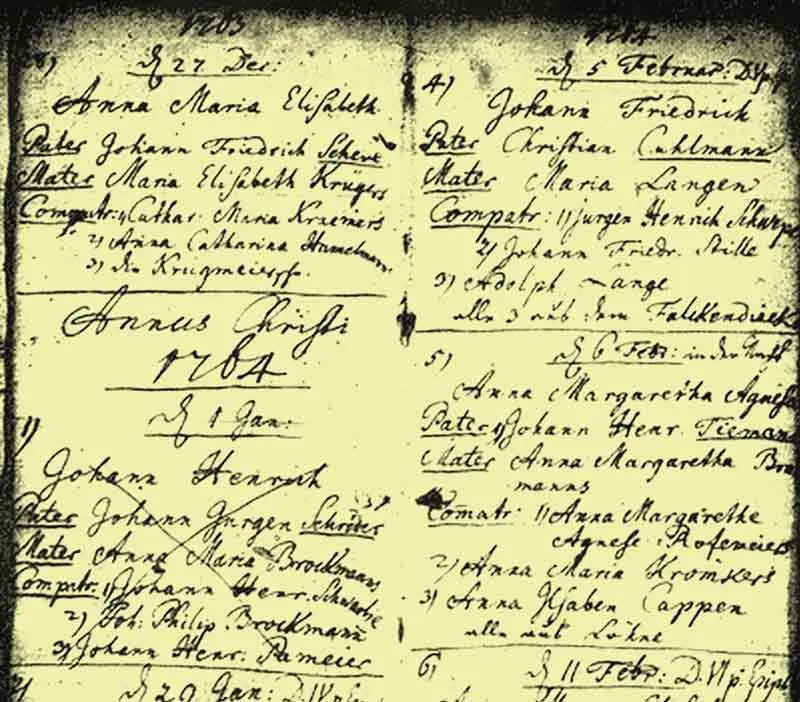 1763
28)
d 27 Dec:
Anna Maria Elisabeth
Pater Johann Friedrich Scheve
Mater Maria Elisabeth Krügers
Compatr: 1) Cathar. Maria Kraemers
2) Anna Catharina Hamelmanns
3) die Krügmeiersche.
Annus Christi
1764
1)
d 1 Jan:
Johann Henrich
Pater Johann Jurgen Schröder
Mater Anna Maria Brockmanns
Compatr. 1) Johann Henr. Schwartze
2) Joh: Philip Brockmann
3) Johann Henr. Pameier
2)
d 29 Jan: D. IV p.
1764
4)
d 5 Februar: D. V p.
Johann Friedrich
Pater Christian Cuhlmann
Mater Maria Langen
Compatr: 1) Jurgen Henrich
2) Johann Friedr. Stille
3) Adolph Länge
alle 3 aus dem Falckendieck
5)
d 6 Febr: in der Nacht
Anna Margaretha Agnesa
Pater Johann Henr. Tiemann
Mater Anna Margaretha
manns
Comatr: 1) Anna Margarethe
Agnese Rosemeiers
2) Anna Maria Kromkers
3) Anna Ilsaben Cappen
alle aus Löhne
6)
d 11 Febr: D. VI p. Epiph